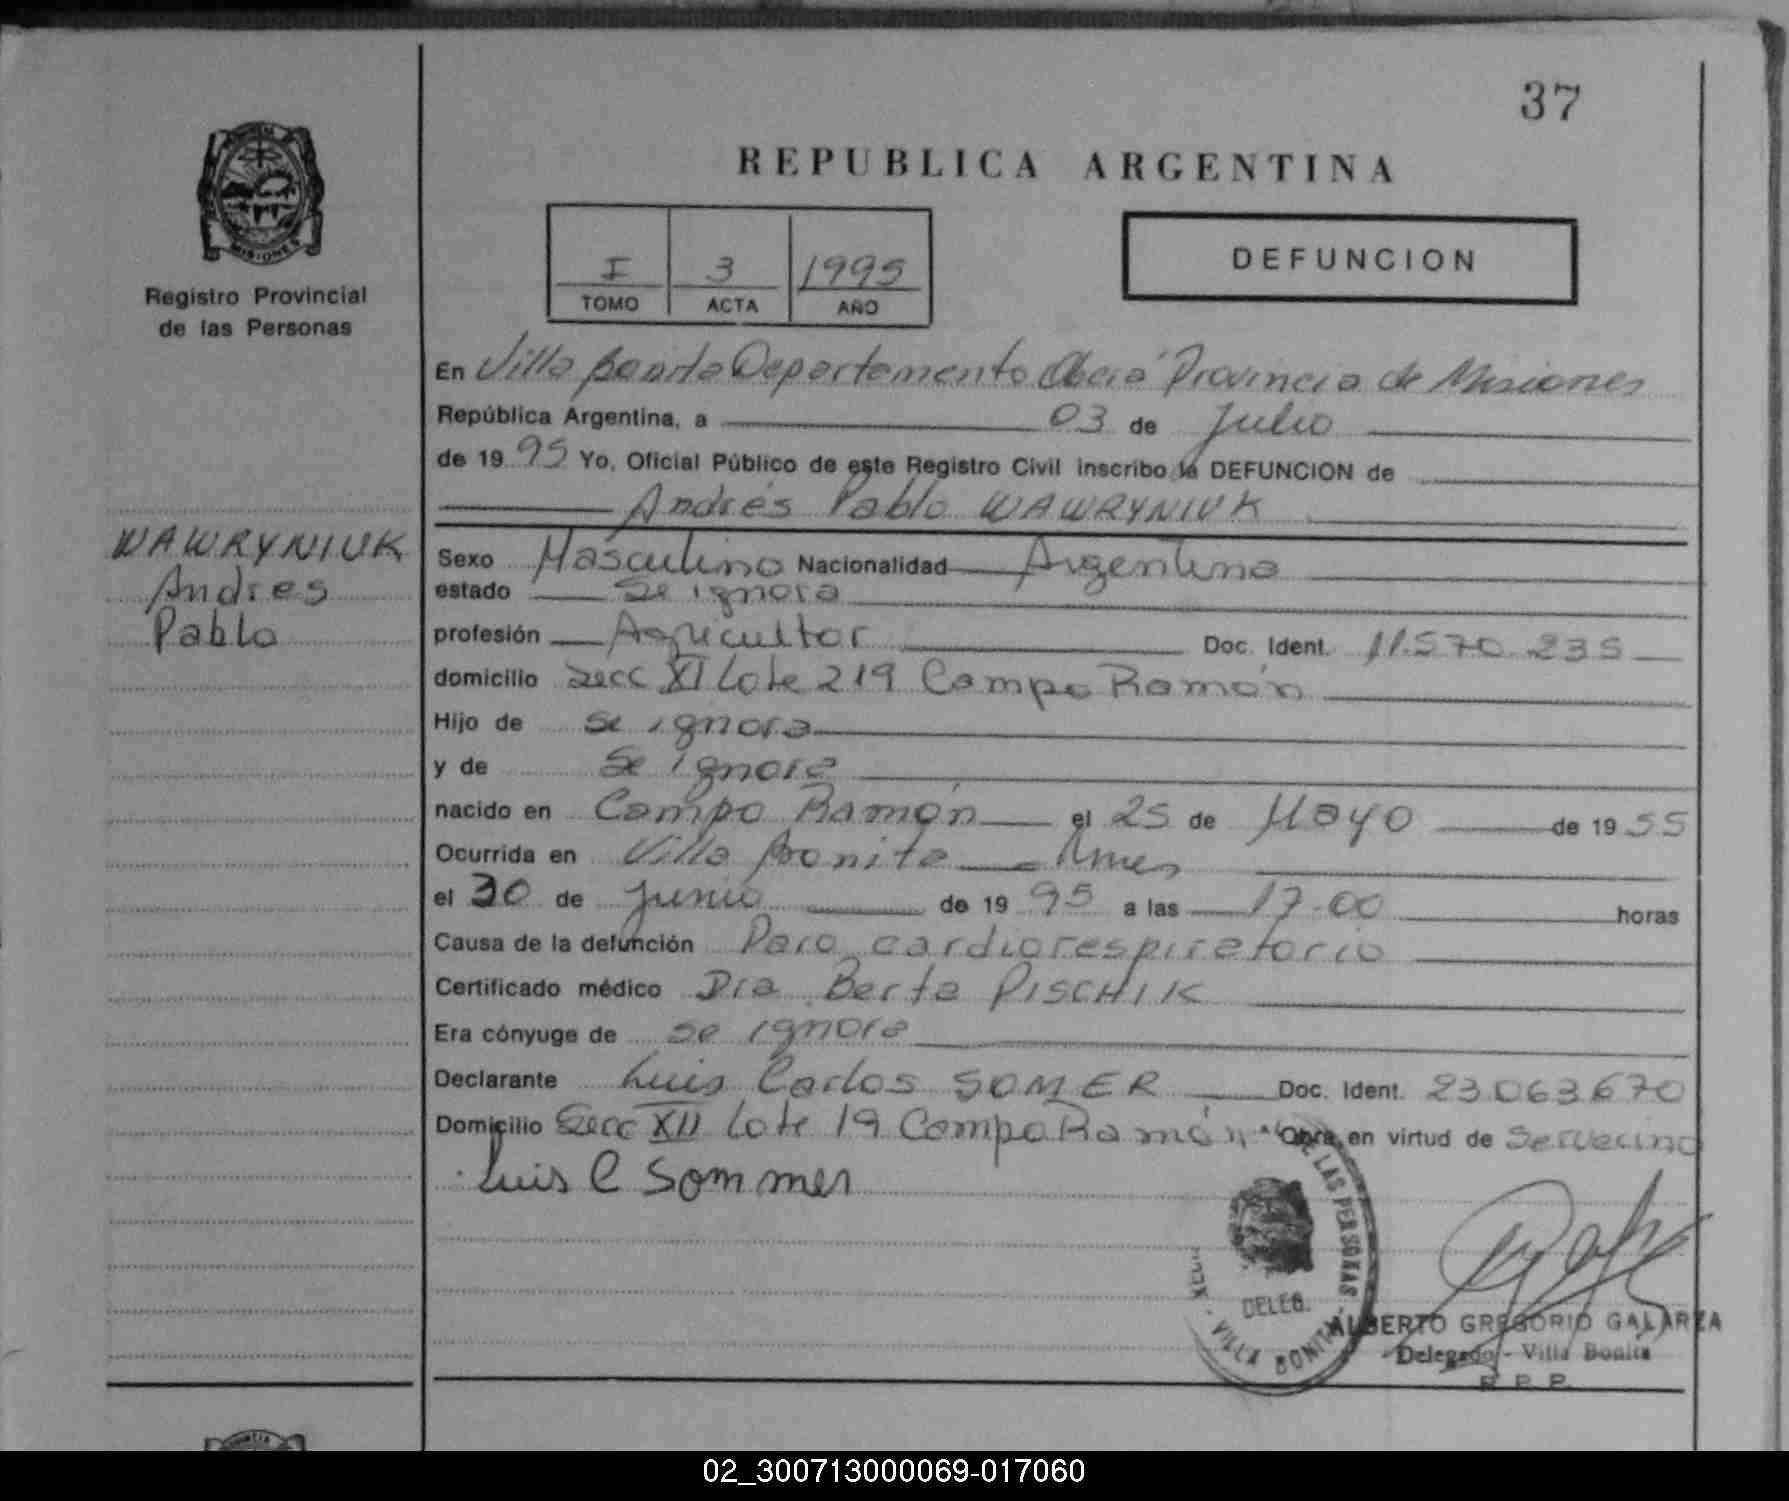 37
REPUBLICA ARGENTINA
MISIONES
Registro Provincial
de las Personas
I 3 1995
TOMO ACTA AÑO
DEFUNCION
En Villa Bonita Departamento Oberá Provincia de Misiones
República Argentina, a 03 de Julio
de 19 95 Yo, Oficial Público de este Registro Civil inscribo la DEFUNCION de
Andrés Pablo WAWRYNIUK
WAWRYNIUK
Andres
Pablo
Sexo Masculino Nacionalidad Argentina
estado se ignora
profesión Agricultor Doc. Ident. 11.570.235
domicilio Secc XI Lote 219 Campo Ramón
Hijo de se ignora
y de se ignora
nacido en Campo Ramón el 25 de Mayo de 19 55
Ocurrida en Villa Bonita
el 30 de Junio de 19 95 a las 17.00 horas
Causa de la defunción Paro cardiorespiratorio
Certificado médico Dra Berta PISCHIK
Era cónyuge de se ignora
Declarante Luis Carlos SOMER Doc. Ident. 23.063.670
Domicilio Secc XII Lote 19 Campo Ramón Obra en virtud de Ser vecino
Luis C Sommer
DE LAS PERSONAS
DELEG.
VILLA BONITA
ALBERTO GREGORIO GALARZA
Delegado - Villa Bonita
R. P. P.
02_300713000069-017060